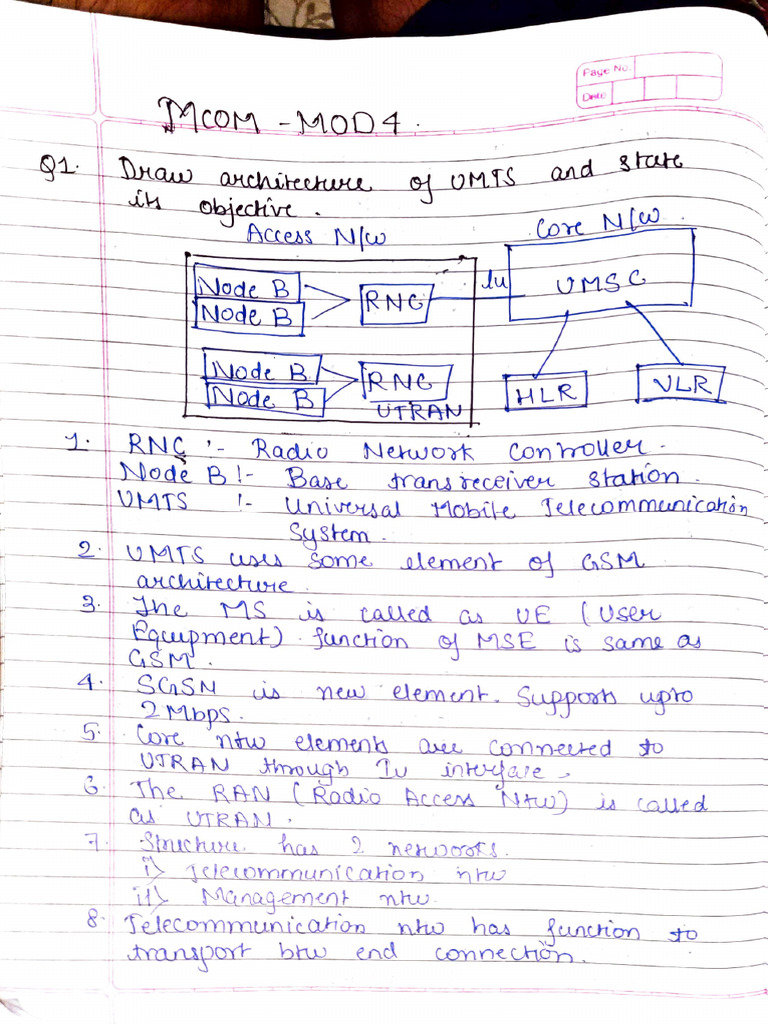 Page No.
Date
MCOM - MOD 4.
Q1. Draw architecture of UMTS and state
its objective.
Access N/w
Core N/W
Node B
Node B
RNC
Iu
UMSC
Node B
Node B
RNC
UTRAN
HLR
VLR
1. RNC :- Radio Network Controller.
Node B :- Base transreceiver station.
UMTS :- Universal Mobile Telecommunication
System.
2. UMTS uses some element of GSM
architecture.
3. The MS is called as UE (User
Equipment) function of MSE is same as
GSM.
4. SGSN is new element. Supports upto
2 Mbps.
5. Core ntw elements are connected to
UTRAN through Iu interface.
6. The RAN (Radio Access Ntw) is called
as UTRAN.
7. Structure has 2 networks.
i) Telecommunication ntw
ii) Management ntw.
8. Telecommunication ntw has function to
transport btw end connection.